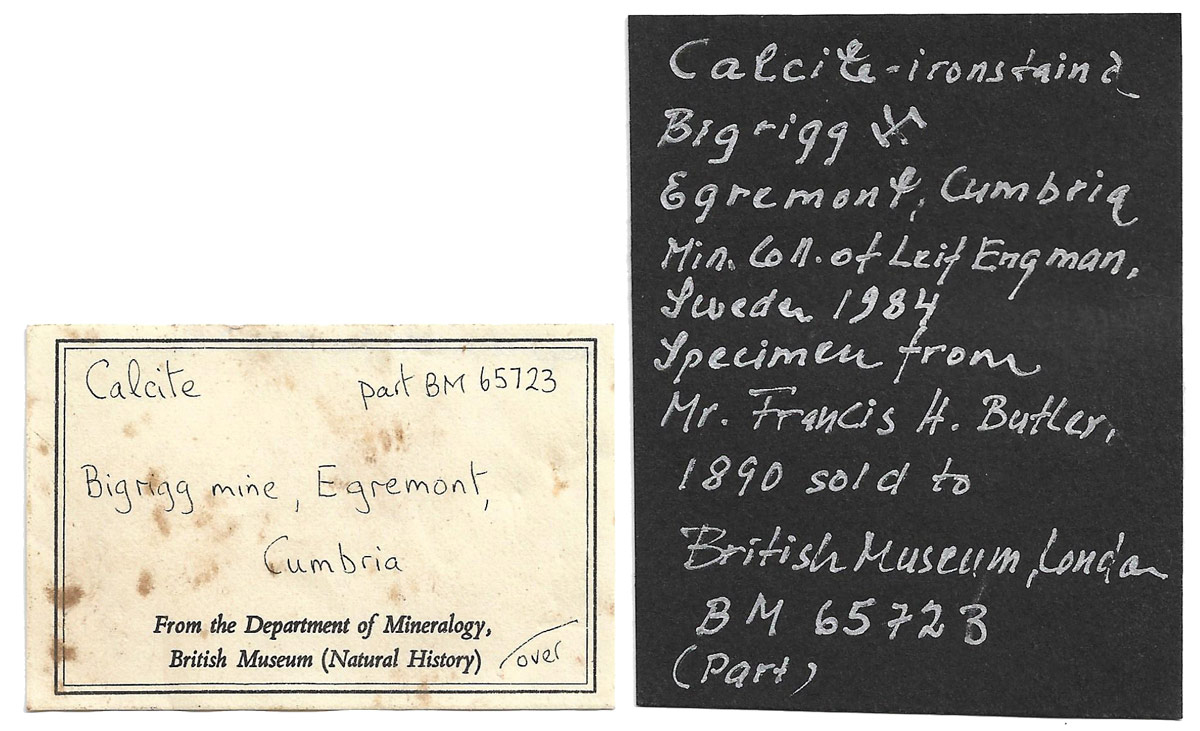 Calcite part BM 65723
Bigrigg mine, Egremont,
Cumbria
From the Department of Mineralogy,
British Museum (Natural History)
over
Calcite-ironstain
Bigrigg ⚒
Egremont, Cumbria
Min. Coll. of Leif Engman,
Sweden 1984
Specimen from
Mr. Francis H. Butler,
1890 sold to
British Museum, London
BM 65723
(Part)